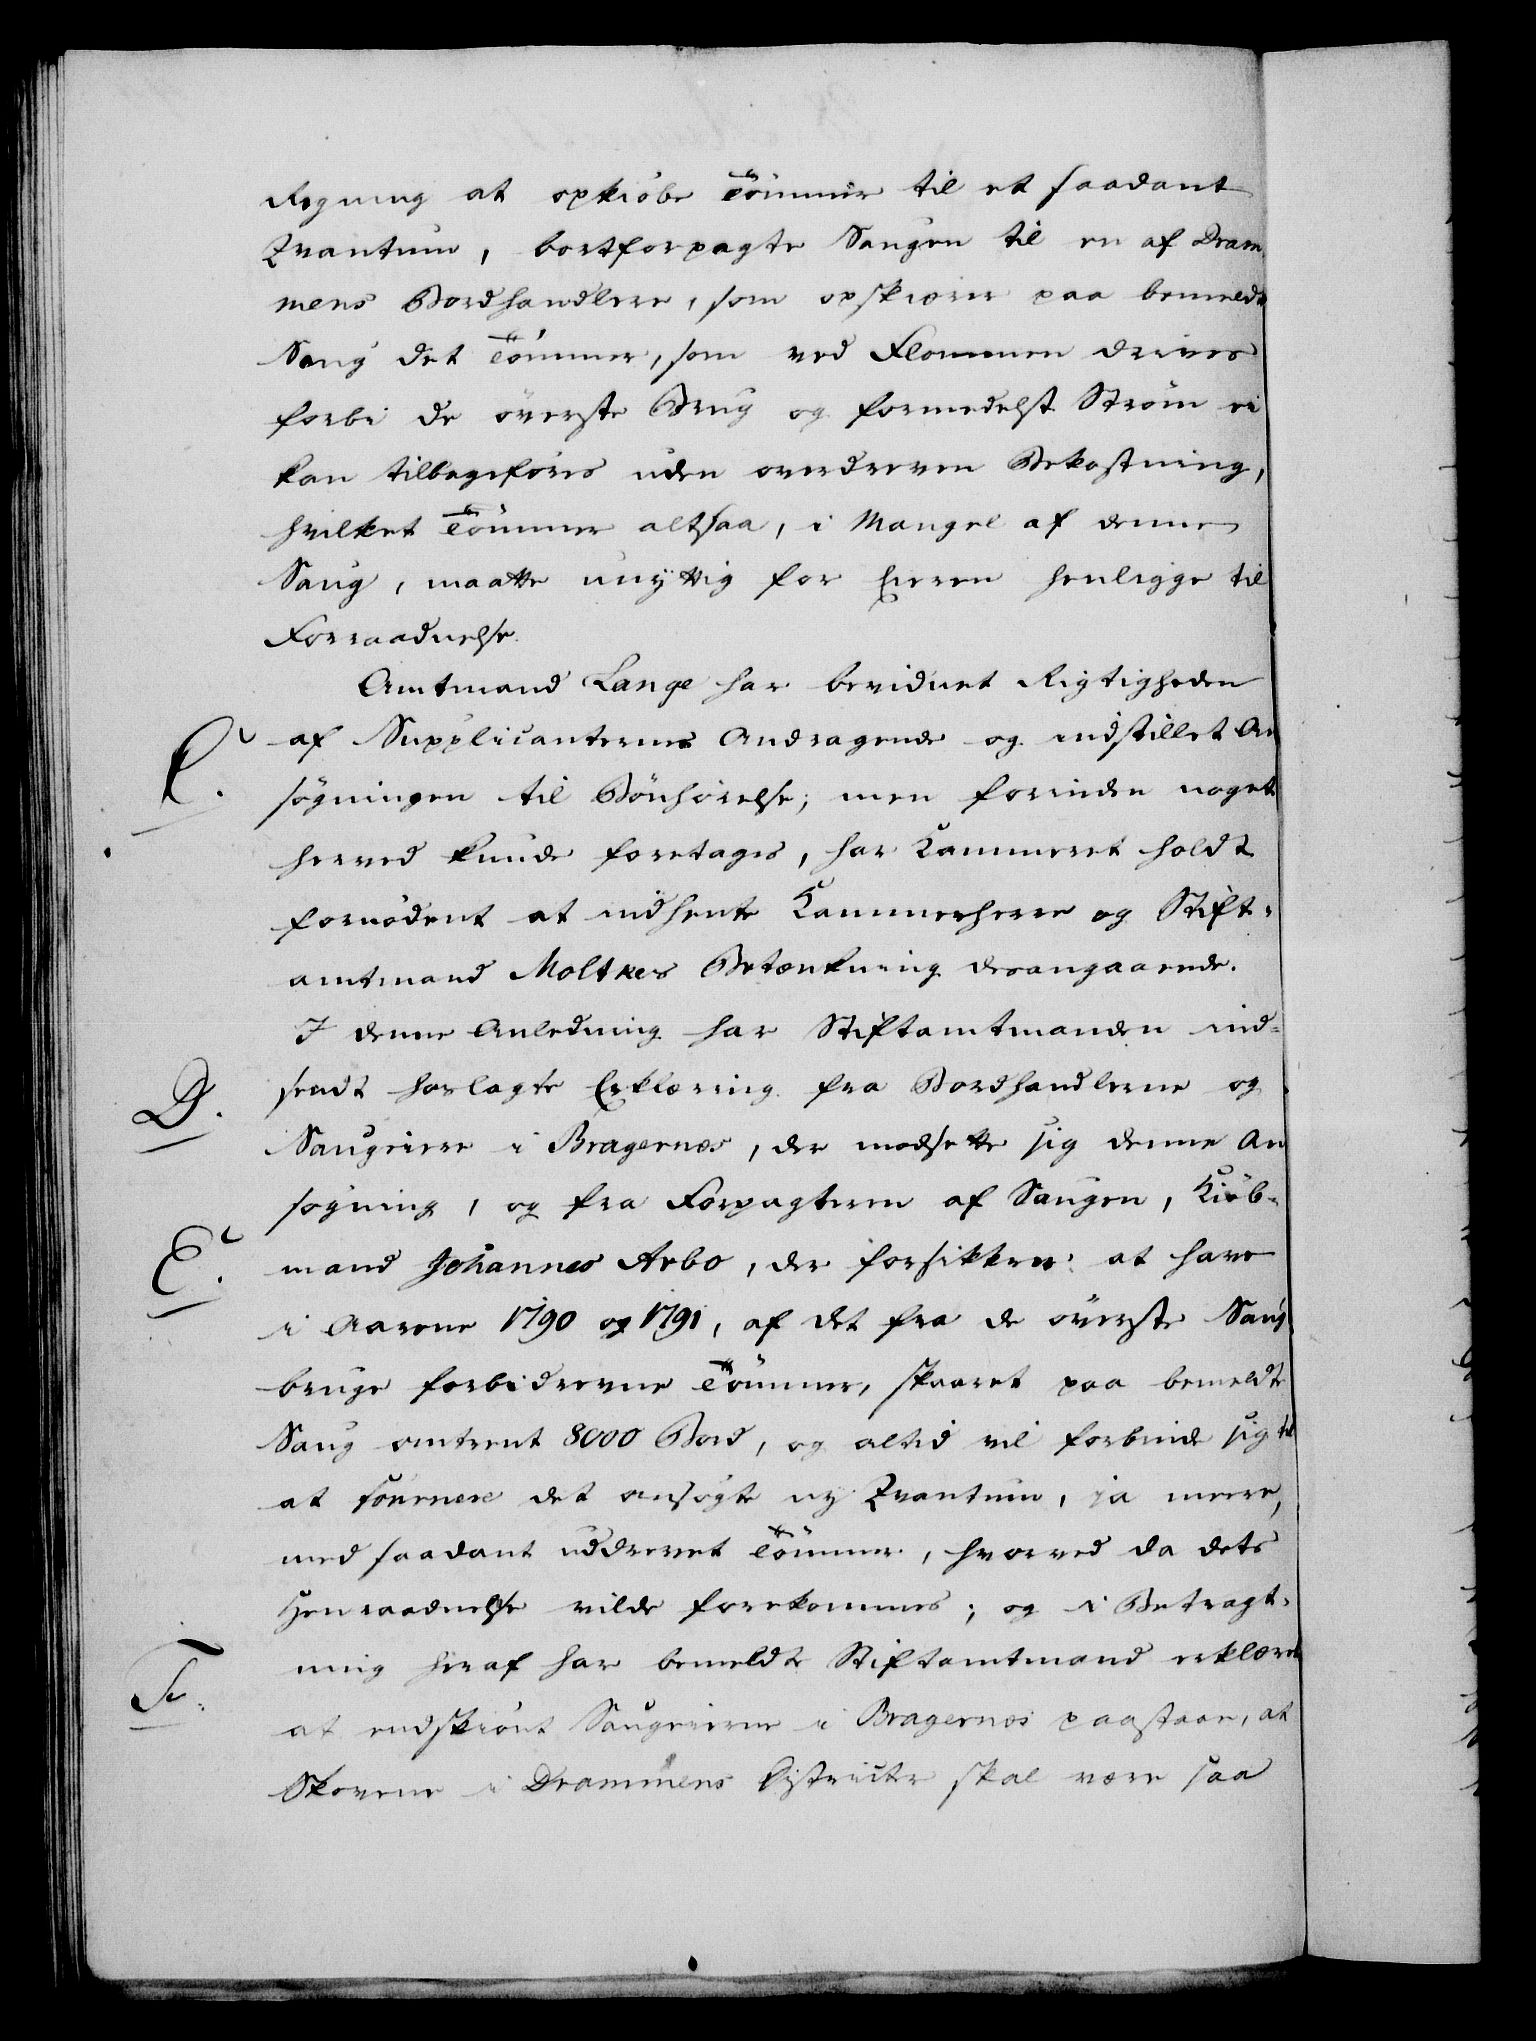 Regning at opkiöbe Tömmer til et saadant
Qvantum, bortforpagte Saugen til en af Dram¬
mens Bordhandlere, som opskiærer paa bemeldte
Saug det Tömmer, som ved Flommen drives
forbi de överste Brug og formedelst Ström ei
kan tilbageföres uden overdreven Bekostning,
hvilket Tömmer altsaa, i Mangel af denne
Saug, maatte unyttig for Eieren henligge til
Forraadnelse.
Amtmand Lange har bevidnet Rigtigheden
C. af Supplicanternes Andragende og indstillet An
søgningen til Bönhörelse; men forinden noget
herved kunde foretages, har Kammeret holdt
fornödent at indhente Kammerherre og Stift-
amtmand Moltkes Betænkning desangaaende.
I denne Anledning har Stiftamtmanden ind-
D. sendt hoslagte Erklæring fra Bordhandlerne og
Saugeiere i Bragernæs, der modsette sig denne An
søgning, og fra Forpagteren af Saugen, Kiöb-
E. mand Johannes Arbo, der forsikkrer at have
i Aarene 1790 og 1791, af det fra de överste Saug
bruge forbidrevne Tömmer, skaaret paa bemeldte
Saug omtrent 8000 Bord, og altid vil forbinde sig til
at fournere det ansögte ny Qvantum, ja meere,
med saadant uddrevet Tömmer, hvorved da dets
Henraadnelse vilde forekommes; og i Betragt-
ning heraf har bemeldte Stiftamtmand erklæret
F. at endskiönt Saugeierne i Bragernæs paastaae, at
Skovene i Drammens Districter skal være saa